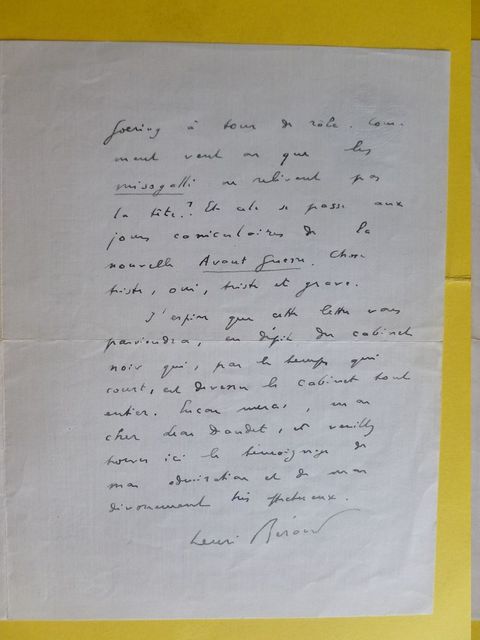 Goering à tour de rôle. Com-
ment veut on que les
misogalli ne relèvent pas
la tête? Et cela se passe aux
jours caniculaires de la
nouvelle Avant Guerre. Chose
triste, oui, triste et grave.
J'espère que cette lettre vous
parviendra, en dépit du cabinet
noir qui, par le temps qui
court, est devenu le cabinet tout
entier. Encore merci, mon
cher Léon Daudet, et veuillez
trouver ici le témoignage de
mon admiration et de mon
dévouement très affectueux.
Henri Béraud